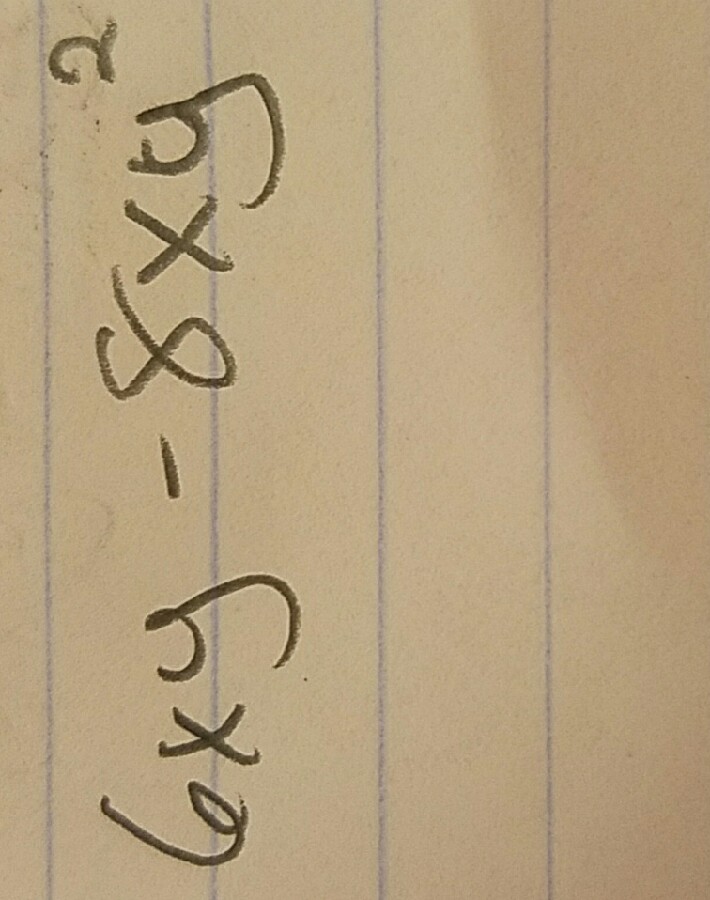 6xy - 8xy²